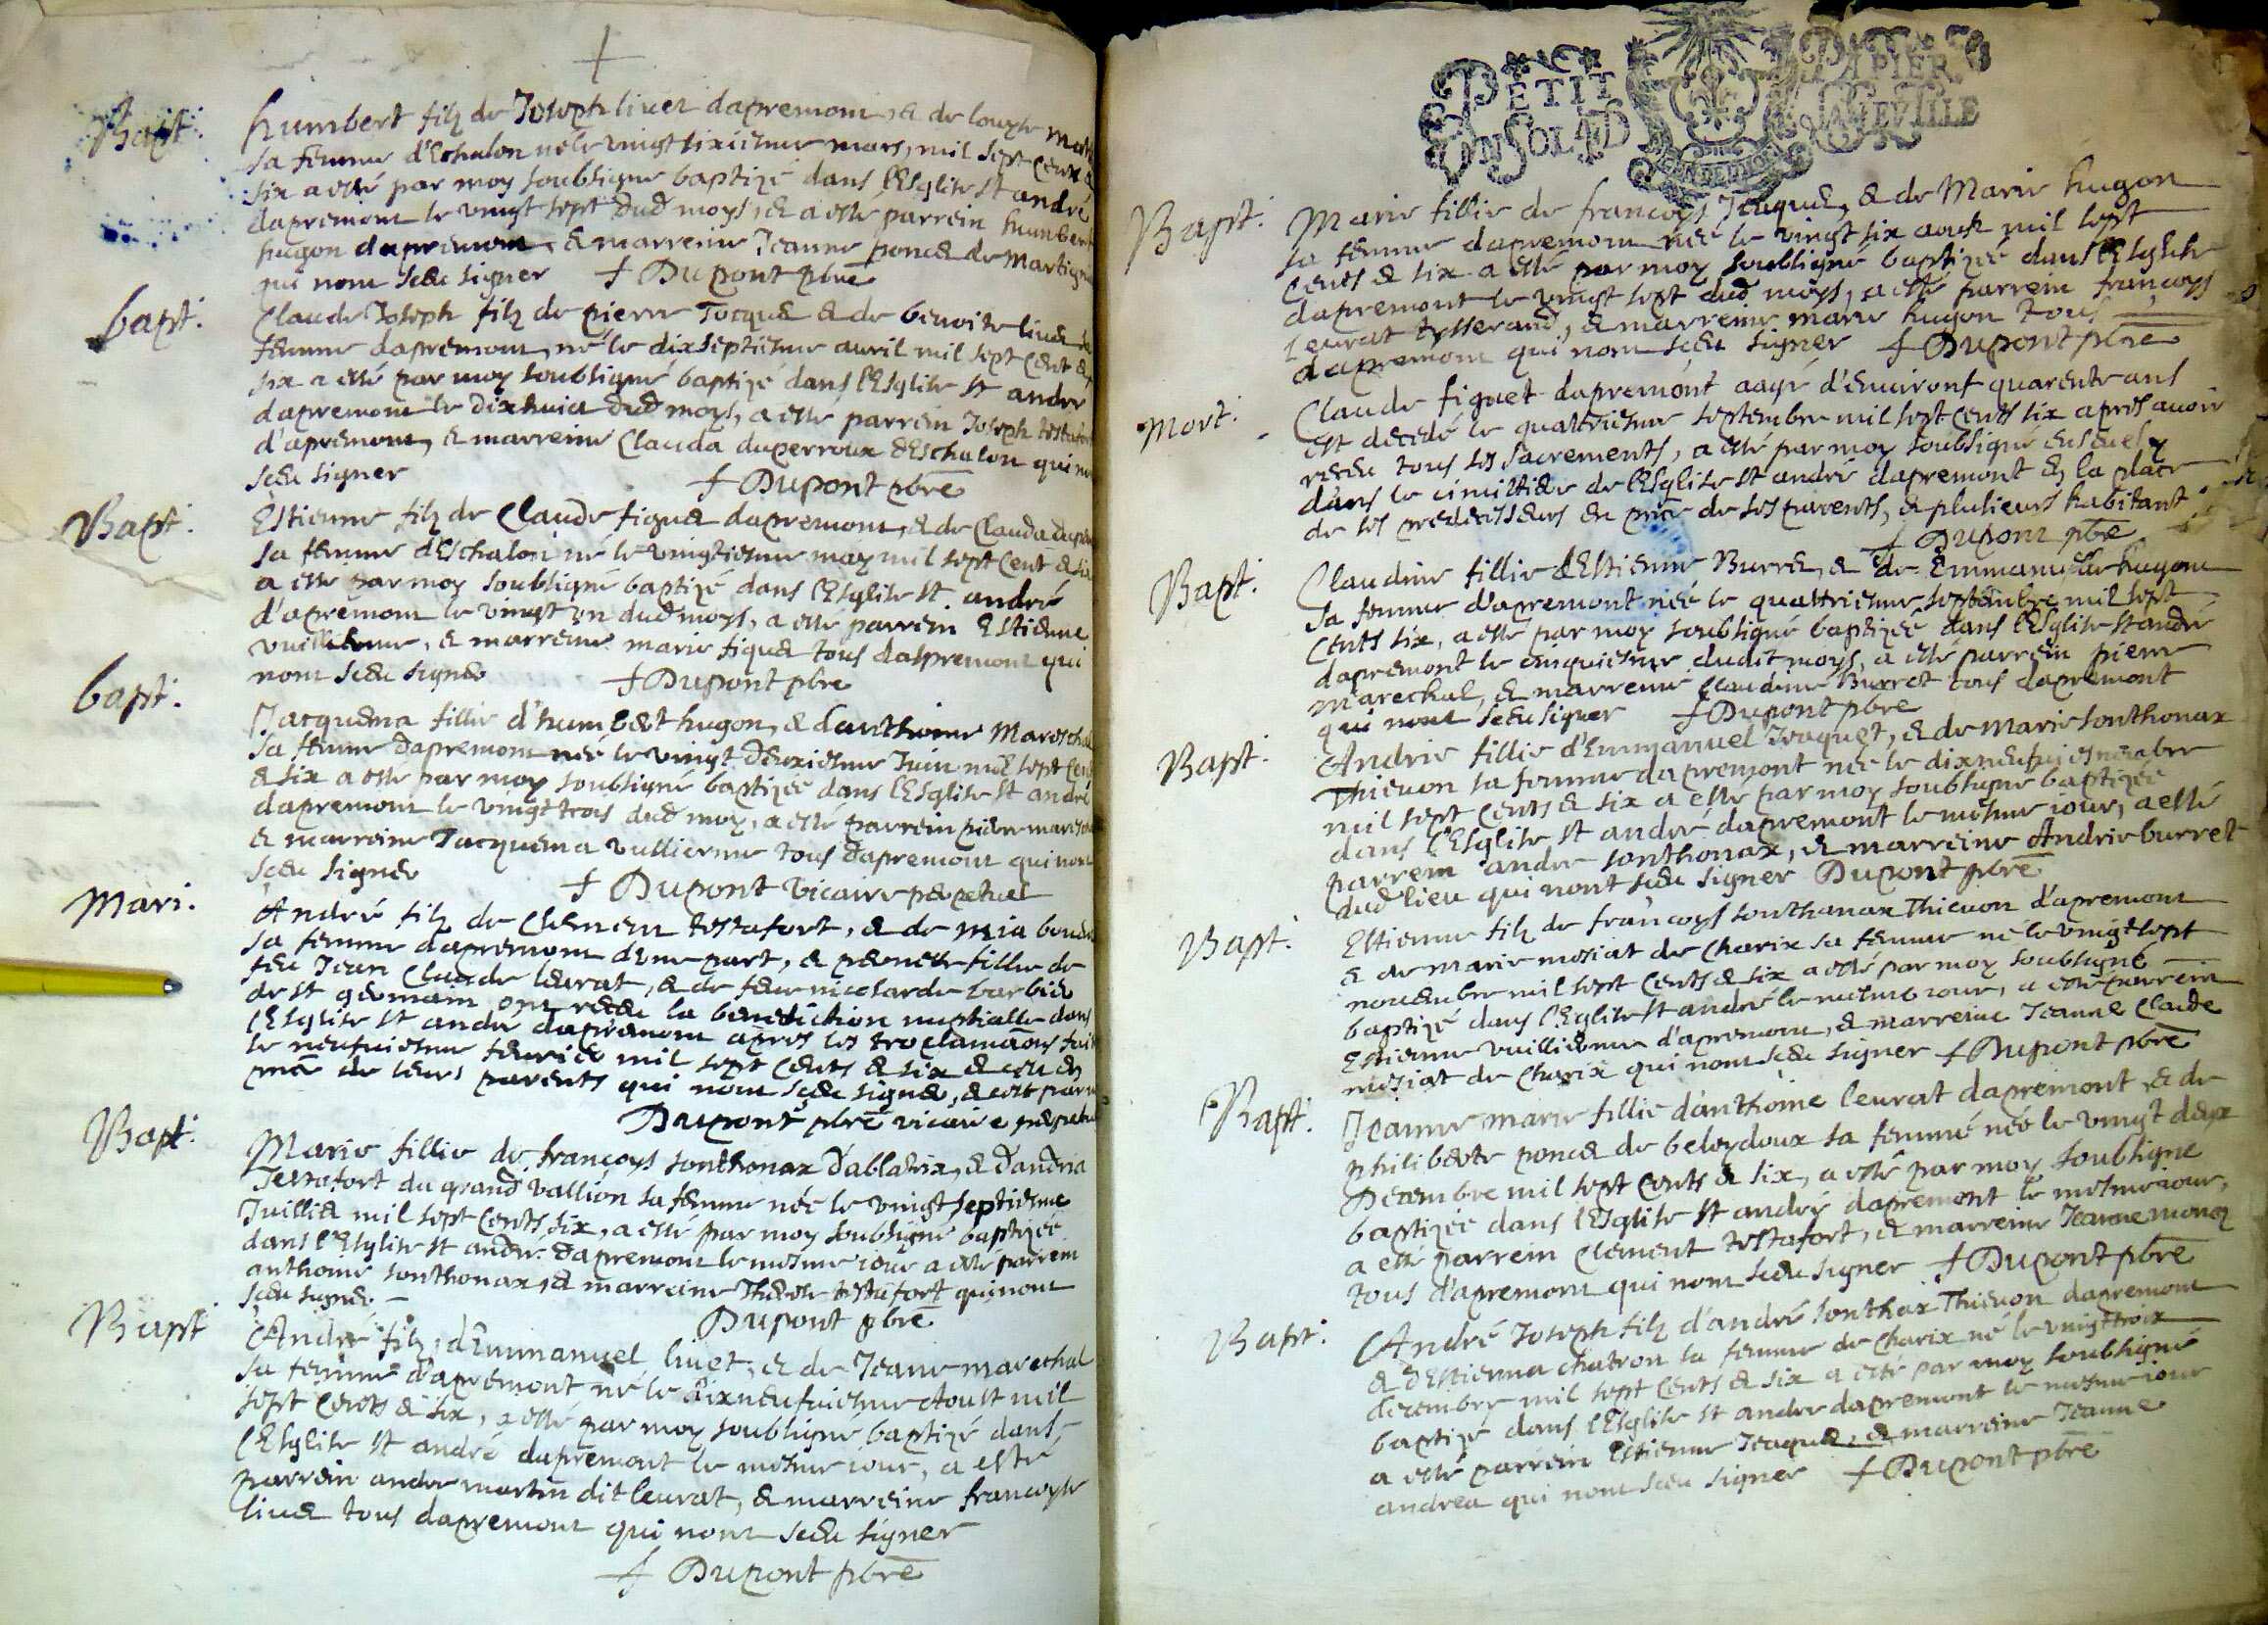 Bapt.
humbert filz de Joseph livet dapremont, & de louyse
sa femme d'Eschalon né le vingt sixiesme mars, mil sept cent &
six a esté par moy soubsigné baptizé dans l'Esglise st andré
dapremont le vingt sept dud moys, & a esté parrein humbert
hugon dapremont, & marreine Jeanne poncet de Martigna
qui nont sceu signer Dupont pbre
bapt.
Claude Joseph filz de pierre Jocquet & de benoite livet sa
femme dapremont, né le dixseptiesme avril mil sept cent &
six a esté par moy soubsigné baptizé dans l'Esglise st andré
dapremont le dixhuict dud moys, a esté parrein Joseph testafort
d'apremont, & marreine Clauda duperroux d'Eschalon qui nont
sceu signer Dupont pbre
Bapt.
Estienne filz de Claude figuet dapremont, & de Clauda
sa femme d'Eschalon né le vingtiesme may mil sept cent & six
a esté par moy soubsigné baptizé dans l'Esglise st andré
d'apremont le vingt un dud moys, a esté parrein Estienne
vuillierme, & marreine marie figuet tous daspremont qui
nont sceu signer Dupont pbre
bapt.
Jacquema fillie d'humbert hugon, & d'anthoine Mareschal
sa femme dapremont née le vingt deuxiesme Juin mil sept cent
& six a esté par moy soubsigné baptizée dans l'Esglise st andré
dapremont le vingt trois dud moy, a esté parrein pierre mareschal
& marreine Jacquema vullierme tous dapremont qui nont
sceu signer Dupont vicaire perpetuel
Mari.
André filz de Clement testafort, & de mia
sa femme dapremont d'une part, & pernette fillie de
feu Jean Claude leurat, & de feue nicolarde barbier
de st germain ont receu la benediction nuptialle dans
l'Esglise st andré dapremont apres les proclamaons
le neufviesme fevrier mil sept cents & six & ce en
pnce de leurs parents qui nont sceu signer, & ce par moy
Dupont pbre vicaire perpetuel
Bapt.
Marie fillie de françoys sonthonax d'ablatrix, & d'andria
Testafort du grand vallion sa femme née le vingt septieme
Juillet mil sept cents six, a esté par moy soubsigné baptizée
dans l'Esglise st andré dapremont le mesme iour a esté parrein
anthoine sonthonax, & marreine Thevene testafort qui nont
sceu signer. Dupont pbre
Bapt
André filz d'Emmanuel livet, & de Jeane marechal
sa femme d'apremont né le dixneufviesme Aoust mil
sept cents & six, a esté par moy soubsigné baptizé dans
l'Esglise st andré dapremont le mesme iour, a esté
parrein andre martin dit leurat, & marreine françoyse
livet tous dapremont qui nont sceu signer
Dupont pbre
PETIT PAPIER
UN SOL 4D LA FEVILLE
Bapt.
Marie fillie de françoys Jeaquet, & de Marie hugon
sa femme dapremont née le vingt six aoust mil sept
cents & six a esté par moy soubsigné baptizée dans l'Esglise
dapremont le vingt sept dud moys, a esté parrein françoys
leurat tysserand, & marreine marie hugon tous
dapremont qui nont sceu signer Dupont pbre
Mort.
Claude figuet dapremont aagé d'environt quarente ans
est decedé le quattriesme septembre mil sept cents six apres avoir
receu tous les sacrements, a esté par moy soubsigné ensevely
dans le cimittiere de l'Esglise st andré dapremont en la place
de ses predecesseurs en pnce de ses parents, & plusieurs habitant
Dupont pbre
Bapt.
Claudine fillie d'Estienne Burret, & de Emmanuelle hugon
sa femme d'apremont née le quattriesme septembre mil sept
cents six, a esté par moy soubsigné baptizée dans l'Esglise st andré
dapremont le cinquiesme dudit moys, a esté parrein pierre
marechal, & marreine Claudine Burret tous dapremont
qui nont sceu signer Dupont pbre
Bapt.
Andrie fillie d'Emmanuel Jeaquet, & de Marie sonthonax
Thievon sa femme dapremont née le
mil sept cents & six a esté par moy soubsigné baptizée
dans l'Esglise st andré dapremont le mesme iour, a esté
parrein andre sonthonax, & marreine Andrie burret
dud lieu qui nont sceu signer Dupont pbre
Bapt.
Estienne filz de françoys sonthanax Thievon d'apremont
& de marie mosiat de Charix sa femme né le vingt sept
novembre mil sept cents & six a esté par moy soubsigné
baptizé dans l'Eglise st andré le mesme iour, a esté parrein
Estienne vuillierme d'apremont, & marreine Jeanne Claude
mosiat de Charix qui nont sceu signer Dupont pbre
Bapt.
Jeanne marie fillie d'anthoine leurat dapremont & de
philiberte poncet de beloydoux sa femme née le vingt deux
Decembre mil sept cents & six, a esté par moy soubsigné
baptizée dans l'Esglise st andré dapremont le mesme iour,
a esté parrein Clement testafort, & marreine Jeanne
tous d'apremont qui nont sceu signer Dupont pbre
Bapt.
André Joseph filz d'andré sonthax Thievon dapremont
& d'Estienna chatron sa femme de Charix né le vingt troix
decembre mil sept cents & six a esté par moy soubsigné
baptizé dans l'Esglise st andre dapremont le mesme iour
a esté parrein Estienne Jeaquet, & marreine Jeanne
andrea qui nont sceu signer Dupont pbre